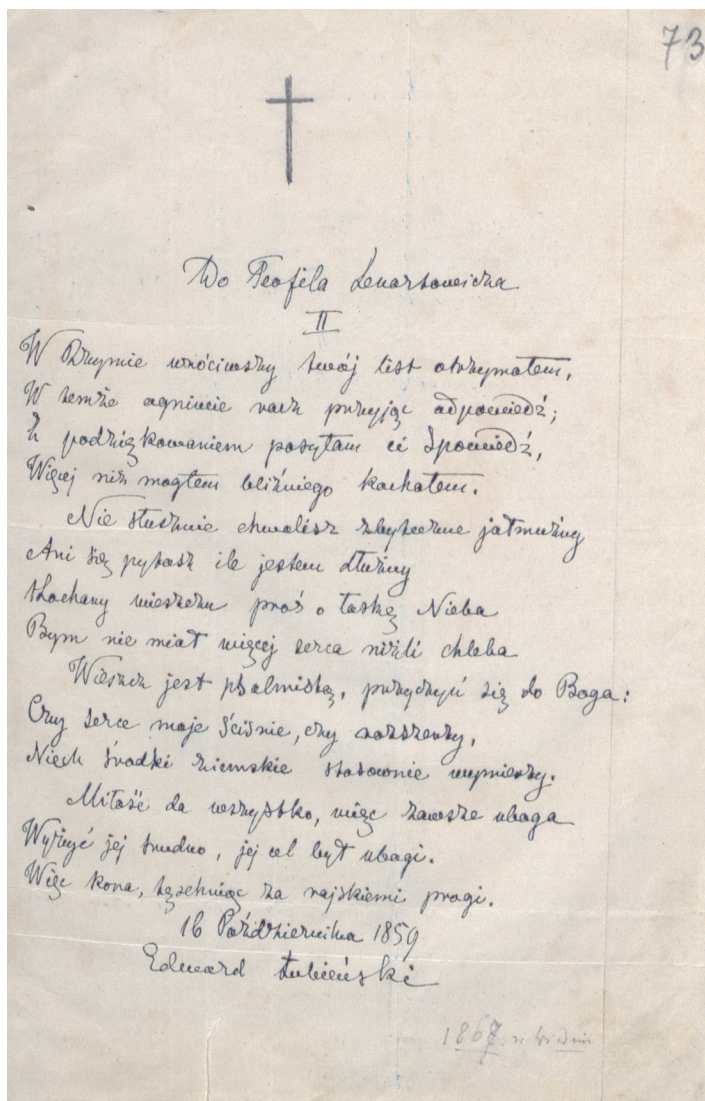 73
Do Teofila Lenartowicza
II
W Rzymie wróciwszy twój list otrzymałem,
W temże ogniwie racz przyjąć odpowiedź;
Z podziękowaniem posyłam ci Spowiedź,
Więcej niż mogłem bliźniego kochałem.
Nie słusznie chwalisz zbyteczne jałmużny
Ani się pytasz ile jestem dłużny
Kochany wieszczu proś o łaskę Nieba
Bym nie miał więcej serca niźli chleba
Wieszcz jest psalmistą, przyczyń się do Boga:
Czy serce moje ściśnie, czy rozszerzy,
Niech środki ziemskie stosownie wymierzy.
Miłość da wszystko, więc zawsze uboga
Wyżyć jej trudno, jej cel był ubogi.
Więc kona, tęskniąc za rajskiemi progi.
16 Października 1859
Edward Łubieński
1867. w Wiedniu